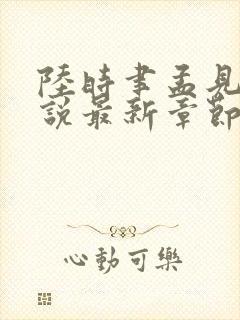 陸時聿孟見
說最新章節
心動可樂